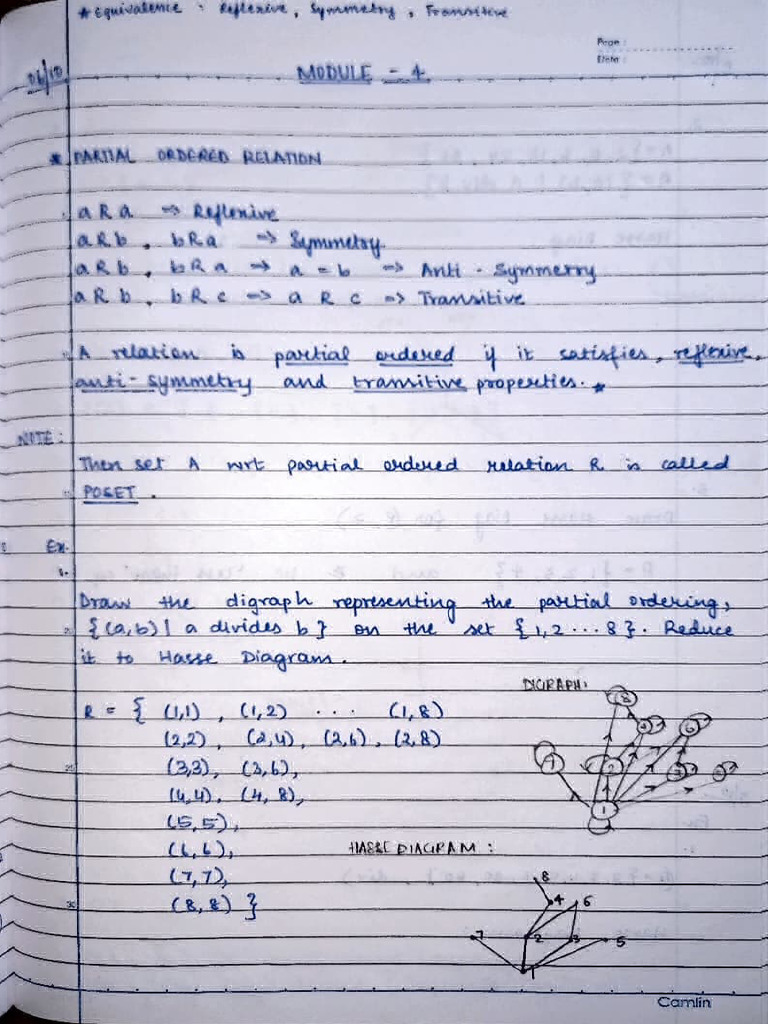 * Equivalence : Reflexive, Symmetry, Transitive
Page :
Date :
06/10
MODULE - 4
* PARTIAL ORDERED RELATION
a R a => Reflexive
a R b , b R a => Symmetry
a R b , b R a => a = b => Anti - Symmetry
a R b , b R c => a R c => Transitive
A relation is partial ordered if it satisfies, reflexive,
anti-symmetry and transitive properties. *
NOTE :
Then set A wrt partial ordered relation R is called
POSET .
Ex.
1.
Draw the digraph representing the partial ordering,
{(a,b) | a divides b} on the set {1,2 ... 8}. Reduce
it to Hasse Diagram.
DIGRAPH:
R = { (1,1) , (1,2) ... (1,8)
(2,2), (2,4), (2,6), (2,8)
(3,3), (3,6),
(4,4), (4,8),
(5,5),
(6,6),
(7,7),
(8,8) }
8
4 6
7 2 3 5
1
HASSE DIAGRAM :
8
4 6
7 2 3 5
1
Camlin